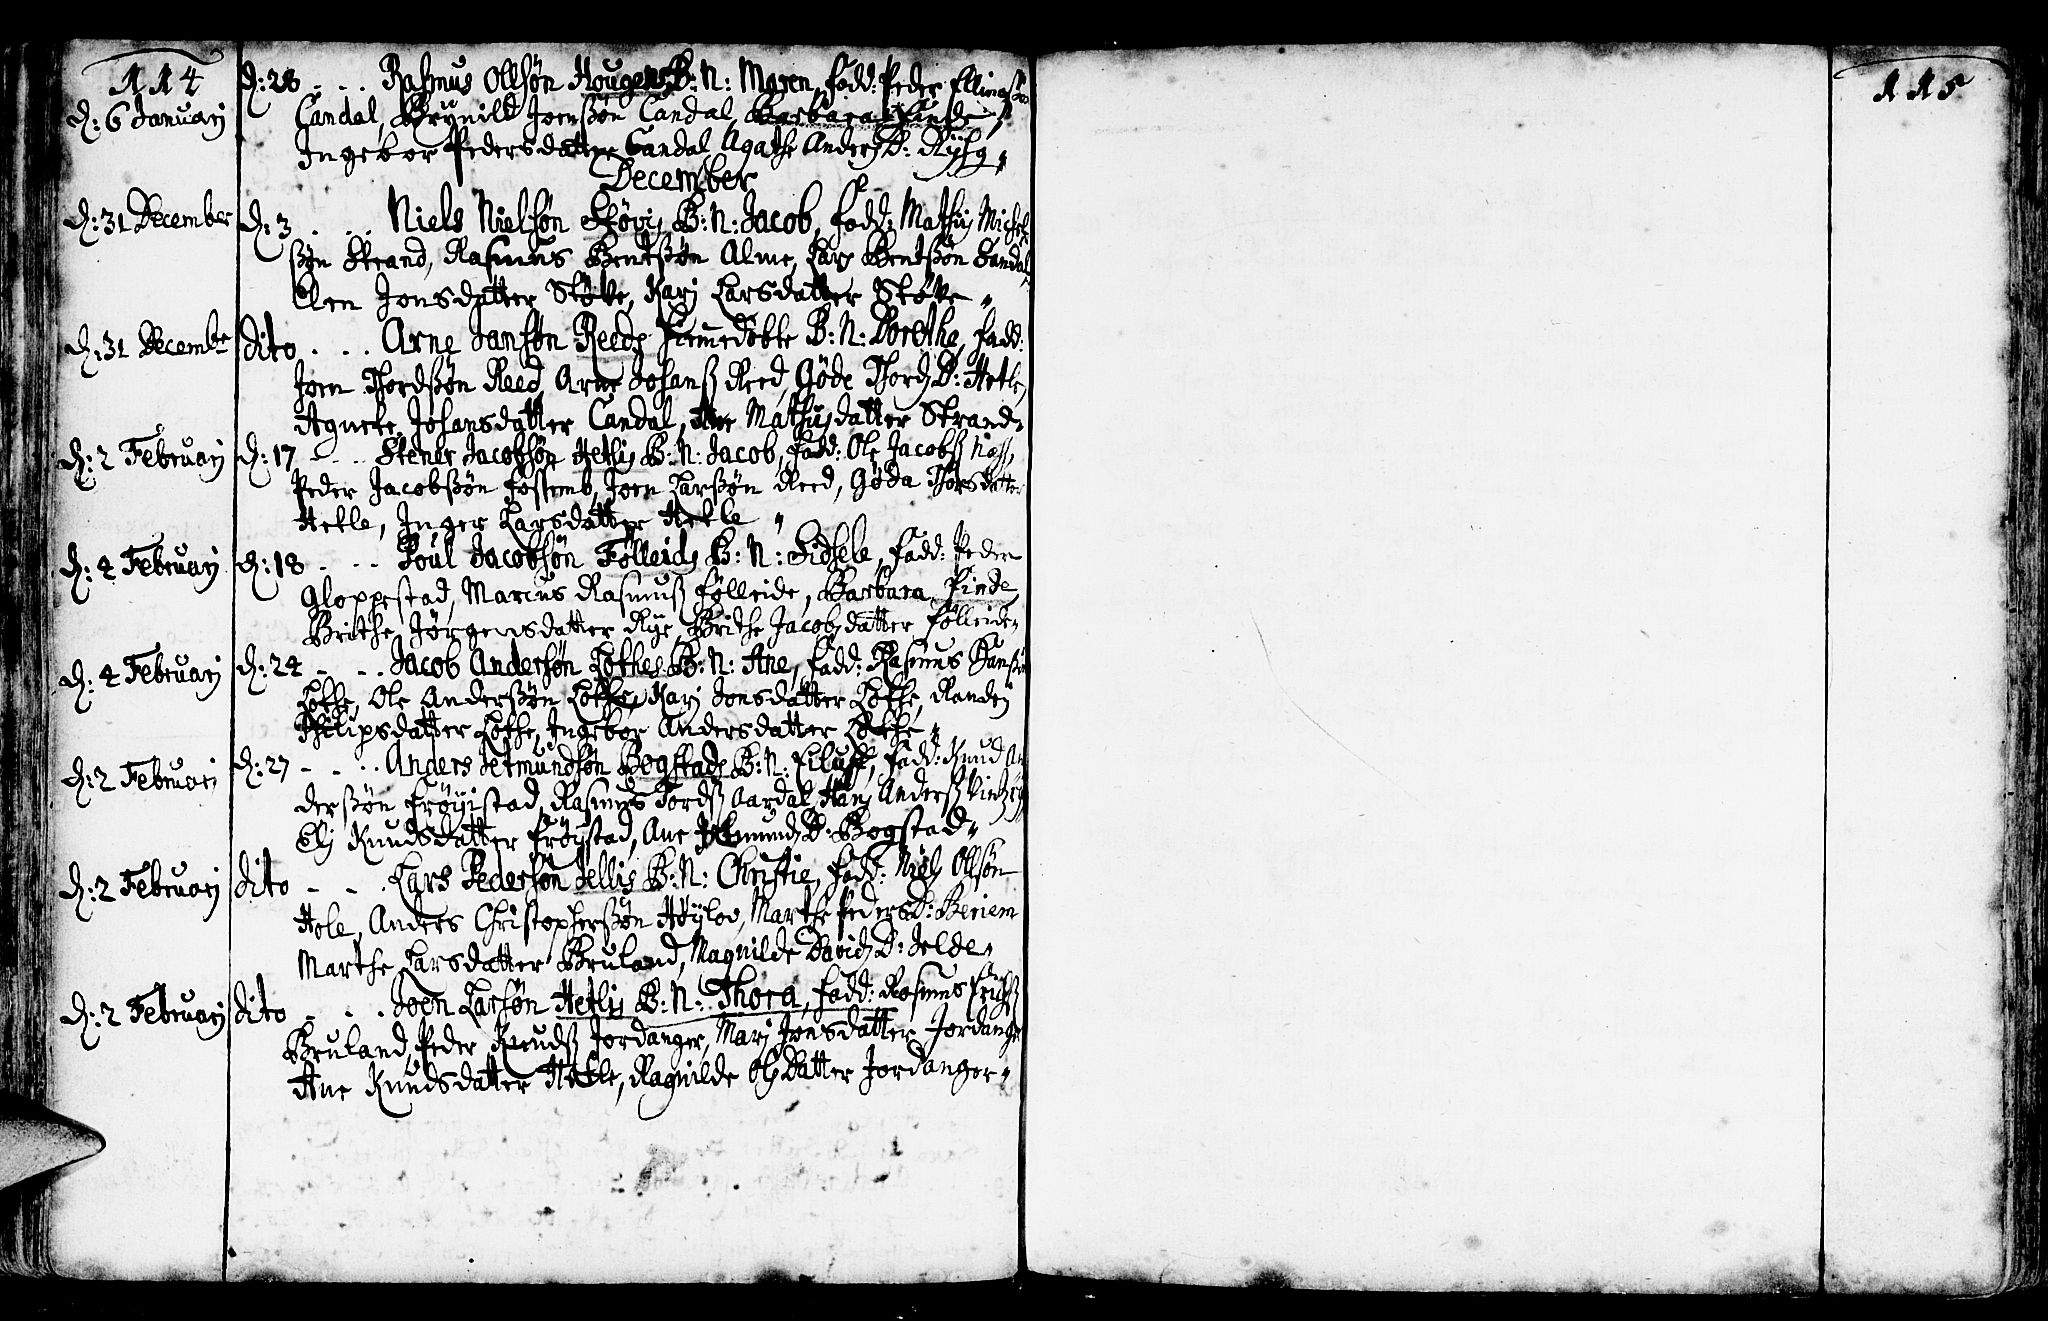 114
d: 28 - - . . Rasmus Ollsøn Hougens B: N: Maren, fadd: Peder Ellingsøn
d: 6 Januarj
Sandal, Brynild Joensøn Sandal, Barbara Finde,
Ingebor Pedersdatter Sandal Agathe Anders D: Rysg
December
d: 31 December d: 3 . . . . Niels Nielsøn Støvis B: N: Jacob, fadd: Mathis Michels
søn Strand, Rasmus Bentsøn Alme, Lars Bentsøn Sandal
Elen Jonsdatter Støve, Karj Larsdatter Støve
d: 31 Decembr dito . . . Arne Jansøn Reeds B: N: Dorethe, fadd:
Joen Thordsøn Reed, Arne Johanß Reed, Gøde Thords D: Hetle,
Agnete Johansdatter Sandal, Ane Mathisdatter Strand
d: 2 Februarj d: 17 - - - . Stener Jacobsøn Hetlis B: N: Jacob, fadd: Ole Jacobß Næss,
Peder Jacobsøn Fossemb, Joen Larsøn Reed, Gøda Thorsdatter
Hetle, Inger Larsdatter Hetle
d: 4 Februarj d: 18 - . . . Poul Jacobsøn Følleids B: N: Sidsele, fadd: Peder
Gloppestad, Marcus Rasmusß Følleide, Barbara Finde,
Brithe Jørgensdatter Rye, Brithe Jacobsdatter Følleide
d: 4 Februarj d: 24 - - . . Jacob Andersøn Løthes B: N: Ane, fadd: Rasmus Hansøn
Løthe, Ole Andersøn Løthe, Karj Jonsdatter Løthe, Randej
Philipsdatter Løthe, Ingebor Andersdatter Løthe
d: 2 Februarj d: 27 - - . . Anders Jetmundsøn Bogstads B: N: Eiluff, fadd: Knud An
dersøn Frøyistad, Rasmus Tordß Aardal, Hans Andersß
Elj Knudsdatter Frøystad, Ane Jetmunds D: Bogstad
d: 2 Februarj dito - - . Lars Pedersøn Jellis B: N: Christie, fadd: Niels Ollsøn
Hole, Anders Christophersøn Høylov, Marthe Peders D: Beriem
Marthe Larsdatter Bruland, Magnilde Davids D: Jelde
d: 2 Februarj dito - . . Joen Larsøn Hetlis B: N: Thora, fadd: Rasmus Erichß
Bruland, Peder Knudß Jordanger, Marj Jonsdatter Jordanger
Ane Knudsdatter Hetle, Ragnilde Ols Datter Jordanger
115